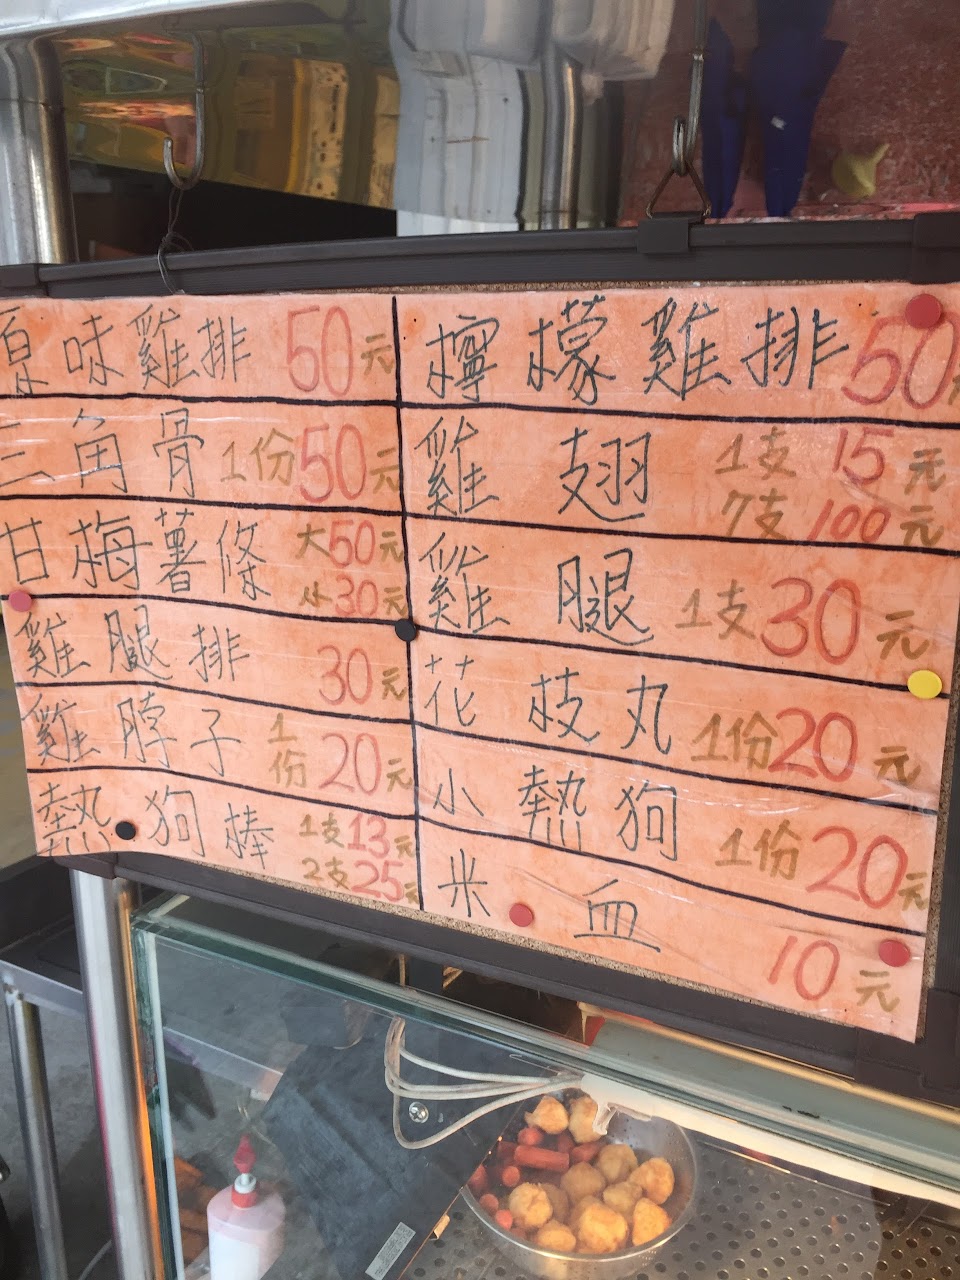 原味雞排 50元
三角骨 1份50元
甘梅薯條 大50元
小30元
雞腿排 30元
雞脖子 1份20元
熱狗棒 1支13元
2支25元
檸檬雞排 50元
雞翅 1支 15元
7支 100元
雞腿 1支30元
花枝丸 1份20元
小熱狗 1份20元
米血 10元